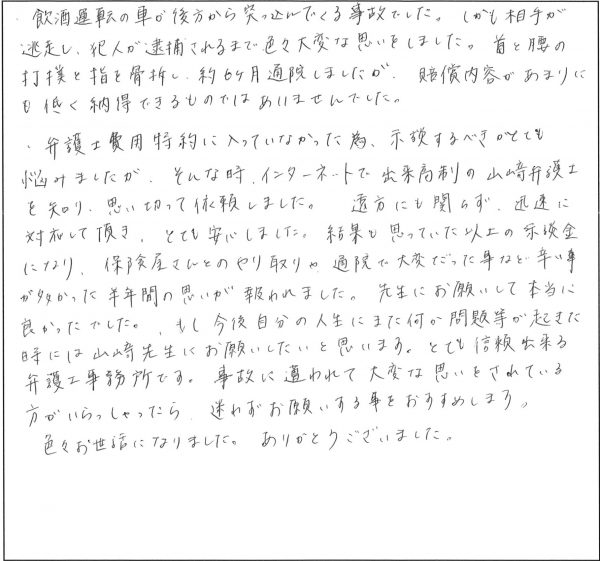 ・飲酒運転の車が後方から突っ込んでくる事故でした。しかも相手が
逃走し、犯人が逮捕されるまで色々大変な思いをしました。首と腰の
打撲と指を骨折し、約6ヶ月通院しましたが、賠償内容があまりに
も低く納得できるものではありませんでした。
・弁護士費用特約に入っていなかった為、示談するべきかとても
悩みましたが、そんな時、インターネットで出来高制の山﨑弁護士
を知り、思い切って依頼しました。遠方にも関らず、迅速に
対応して頂き、とても安心しました。結果も思っていた以上の示談金
になり、保険屋さんとのやり取りや、通院で大変だった事など辛い事
が多かった半年間の思いが報われました。先生にお願いして本当に
良かったでした。もし今後自分の人生にまた何か問題等が起きた
時には山﨑先生にお願いしたいと思います。とても信頼出来る
弁護士事務所です。事故に遭われて大変な思いをされている
方がいらっしゃったら、迷わずお願いする事をおすすめします。
色々お世話になりました。ありがとうございました。